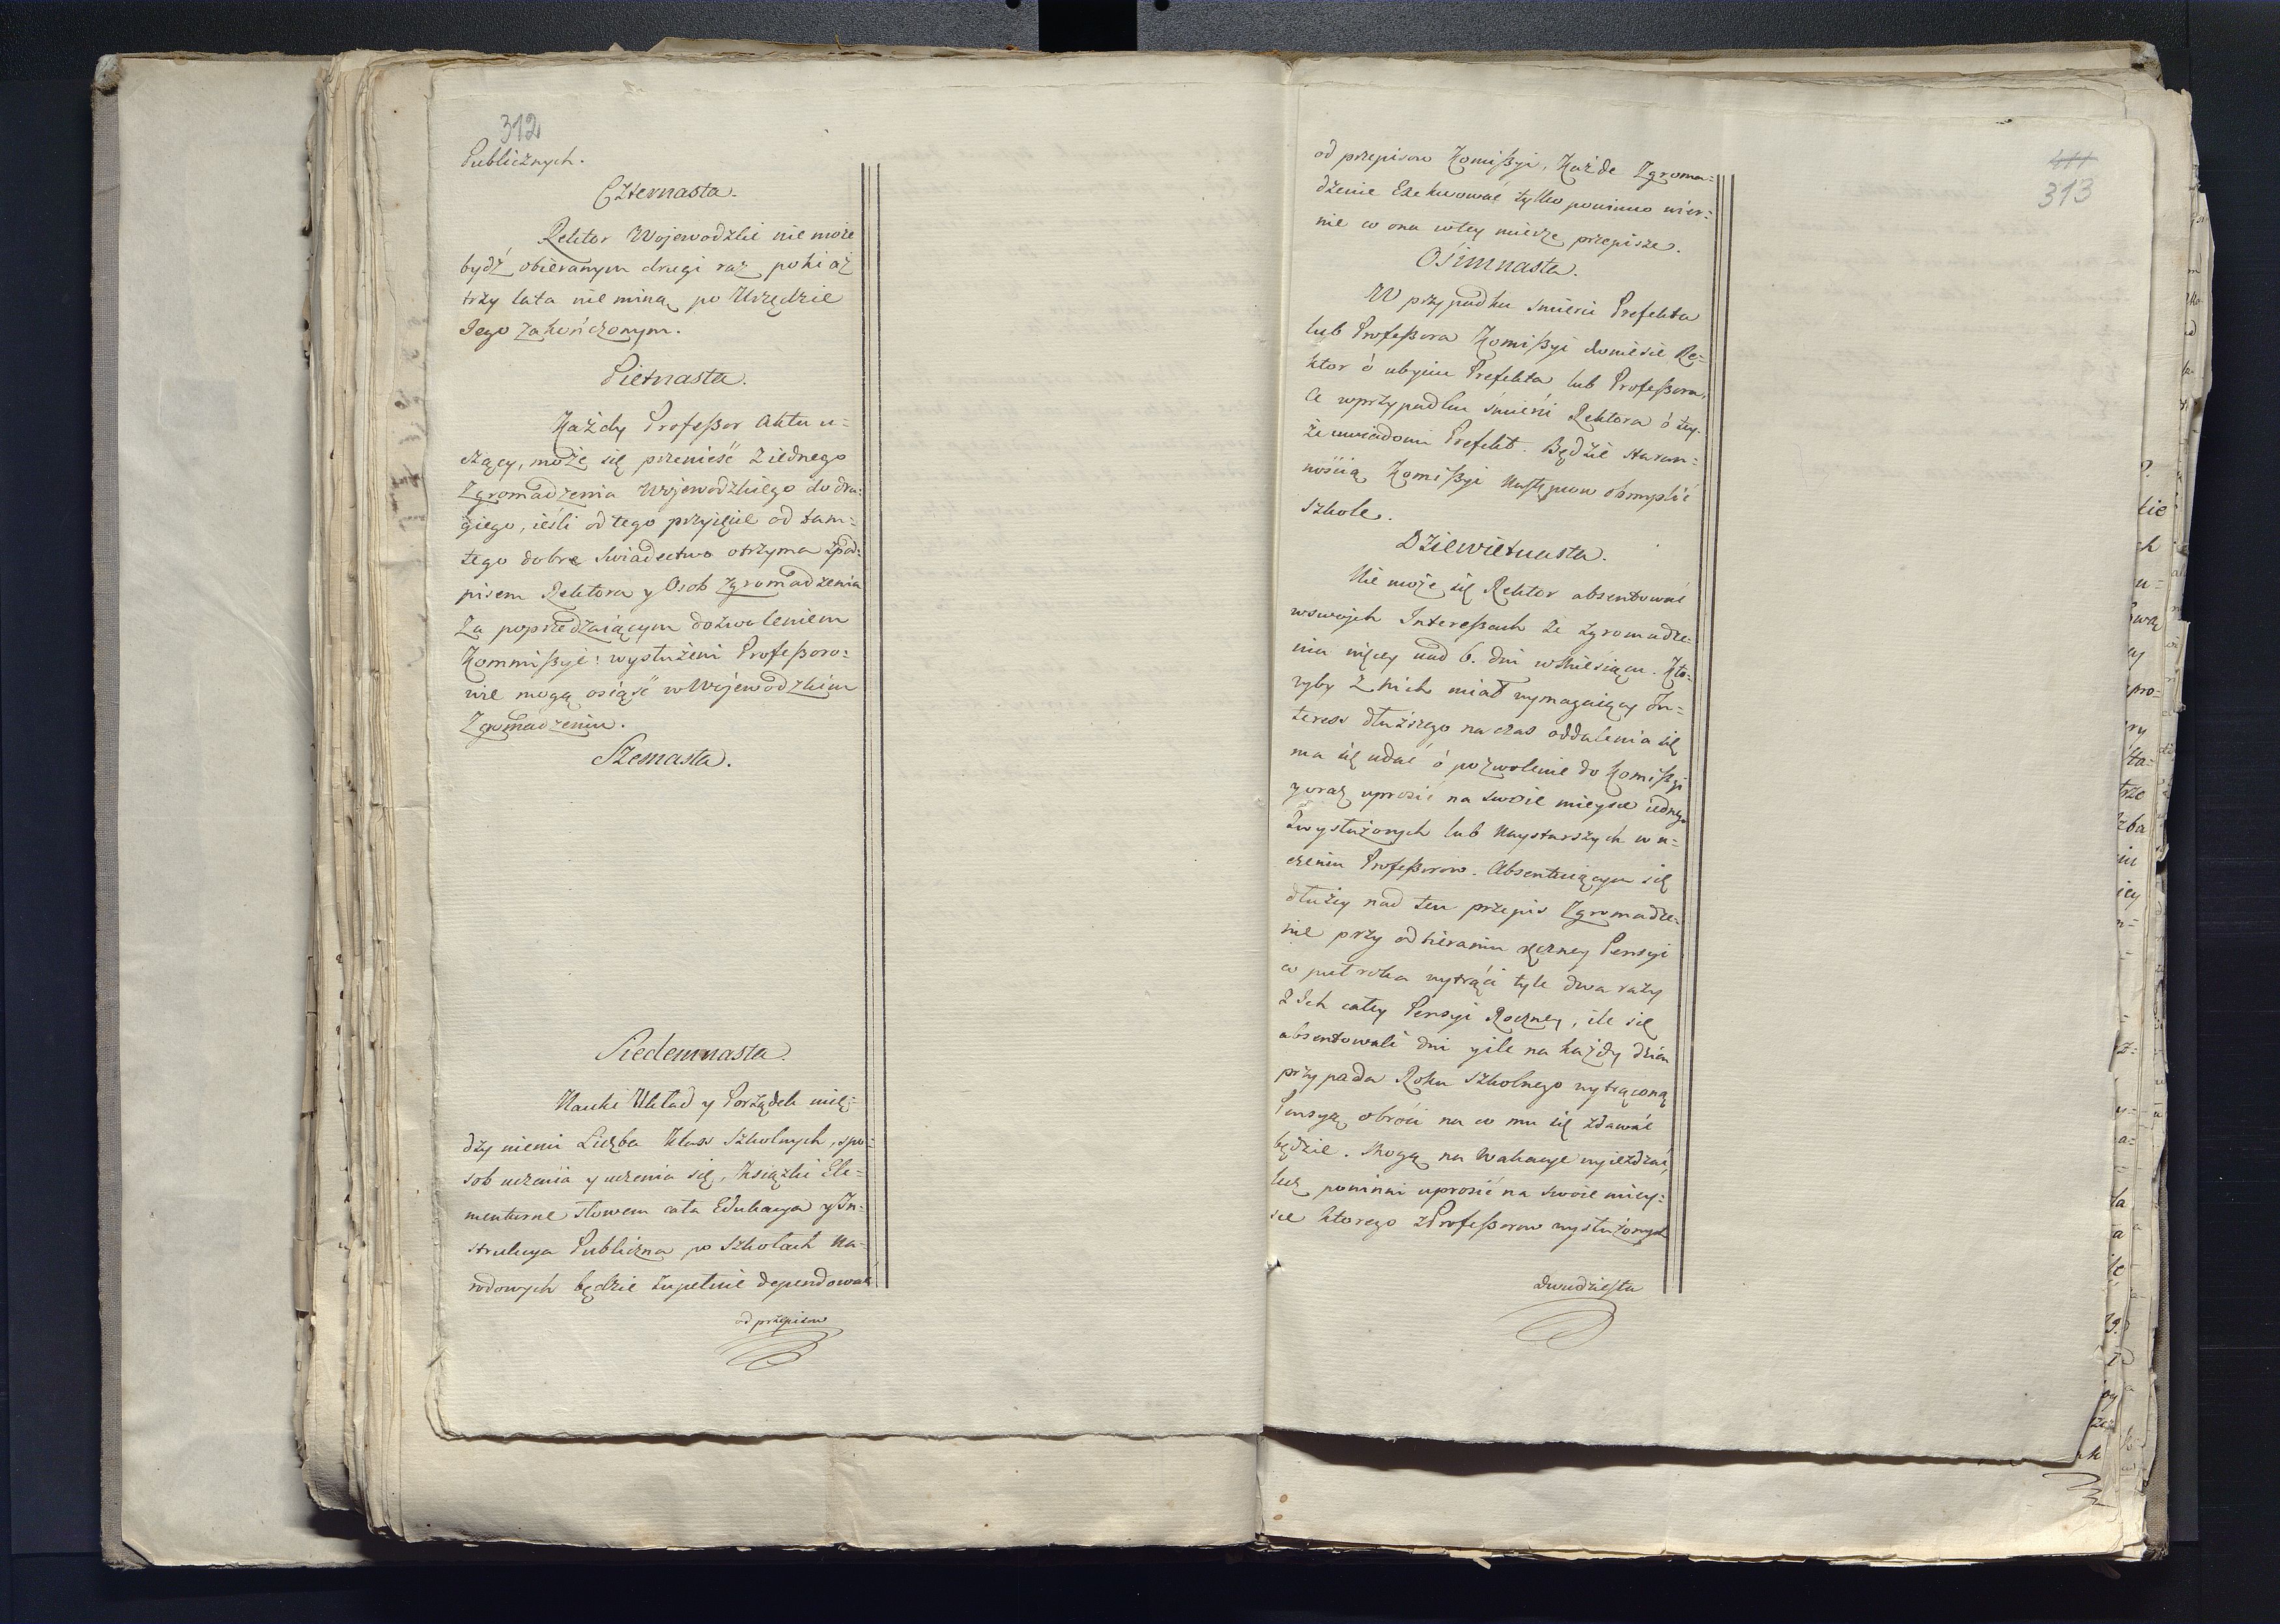 312
Publicznych.
Czternasta.
Rektor Wojewodzki nie może
bydź obieranym drugi raz poki aż
trzy lata nie miną po Urzędzie
Jego zakończonym.
Pietnasta.
Każdy Profeßor Aktu u=
czący, może się przenieść z iednego
Zgromadzenia Wojewodzkiego do dru=
giego, ieśli od tego przyięcie od tam=
tego dobre swiadectwo otrzyma z pod=
pisem Rektora y Osob Zgromadzenia
za poprzedzaiącym dozwoleniem
Kommißyi: wysłużeni Profeßoro=
wie mogą osiąść w Wojewodzkim
Zgromadzeniu.
Szesnasta.
Siedemnasta.
Nauki Układ y Porządek mię=
dzy niemi Liczba Klass Szkolnych, spo=
sob uczenia y uczenia się, Książki Ele=
mentarne słowem cała Edukacya y In=
strukcya Publiczna po Szkołach Na=
rodowych będzie zupełnie dependować
od przepisow
411
313
od przepisow Komißyi, Każde Zgroma=
dzenie Exekwować tylko powinno wier=
nie co ona w tey mierze przepisze.
Osimnasta.
W przypadku smierci Prefekta
lub Profeßora Komißyi doniesie Re=
ktor ó ubyciu Prefekta lub Profeßora,
A w przypadku śmierci Rektora ó tey=
że uwiadomi Prefekt. Będzie staran=
nością Komißyi Następcow obmyślić
szkole.
Dziewietnasta.
Nie może się Rektor absentować
w swojch Intereßach ze zgromadze=
nia więcy nad 6. dni w Miesiącu. Kto=
ryby z nich miał wymagaiący In=
teress dłuższego na czas oddalenia się
ma się udać ó pozwolenie do Komißyi
y oraz uprosić na swoie mieysce iednego
z wysłużonych lub Naystarszych w u=
czeniu Profeßorow. Absentuiącym się
dłużey nad ten przepis Zgromadze=
nie przy odbieraniu ręczney Pensyi
co puł roka wytrąci tyle dwa razy
z Jch całey Pensyi Roczney, ile się
absentowali dni y ile na każdy dzien
przypada Roku szkolnego wytrąconą
Pensyą obroci na co mu się zdawać
będzie. Mogą na Wakacye wyieżdżać,
lecz powinni uprosić na swoie miey=
sce ktorego z Profeßorow wysłużonych
dwudziesta